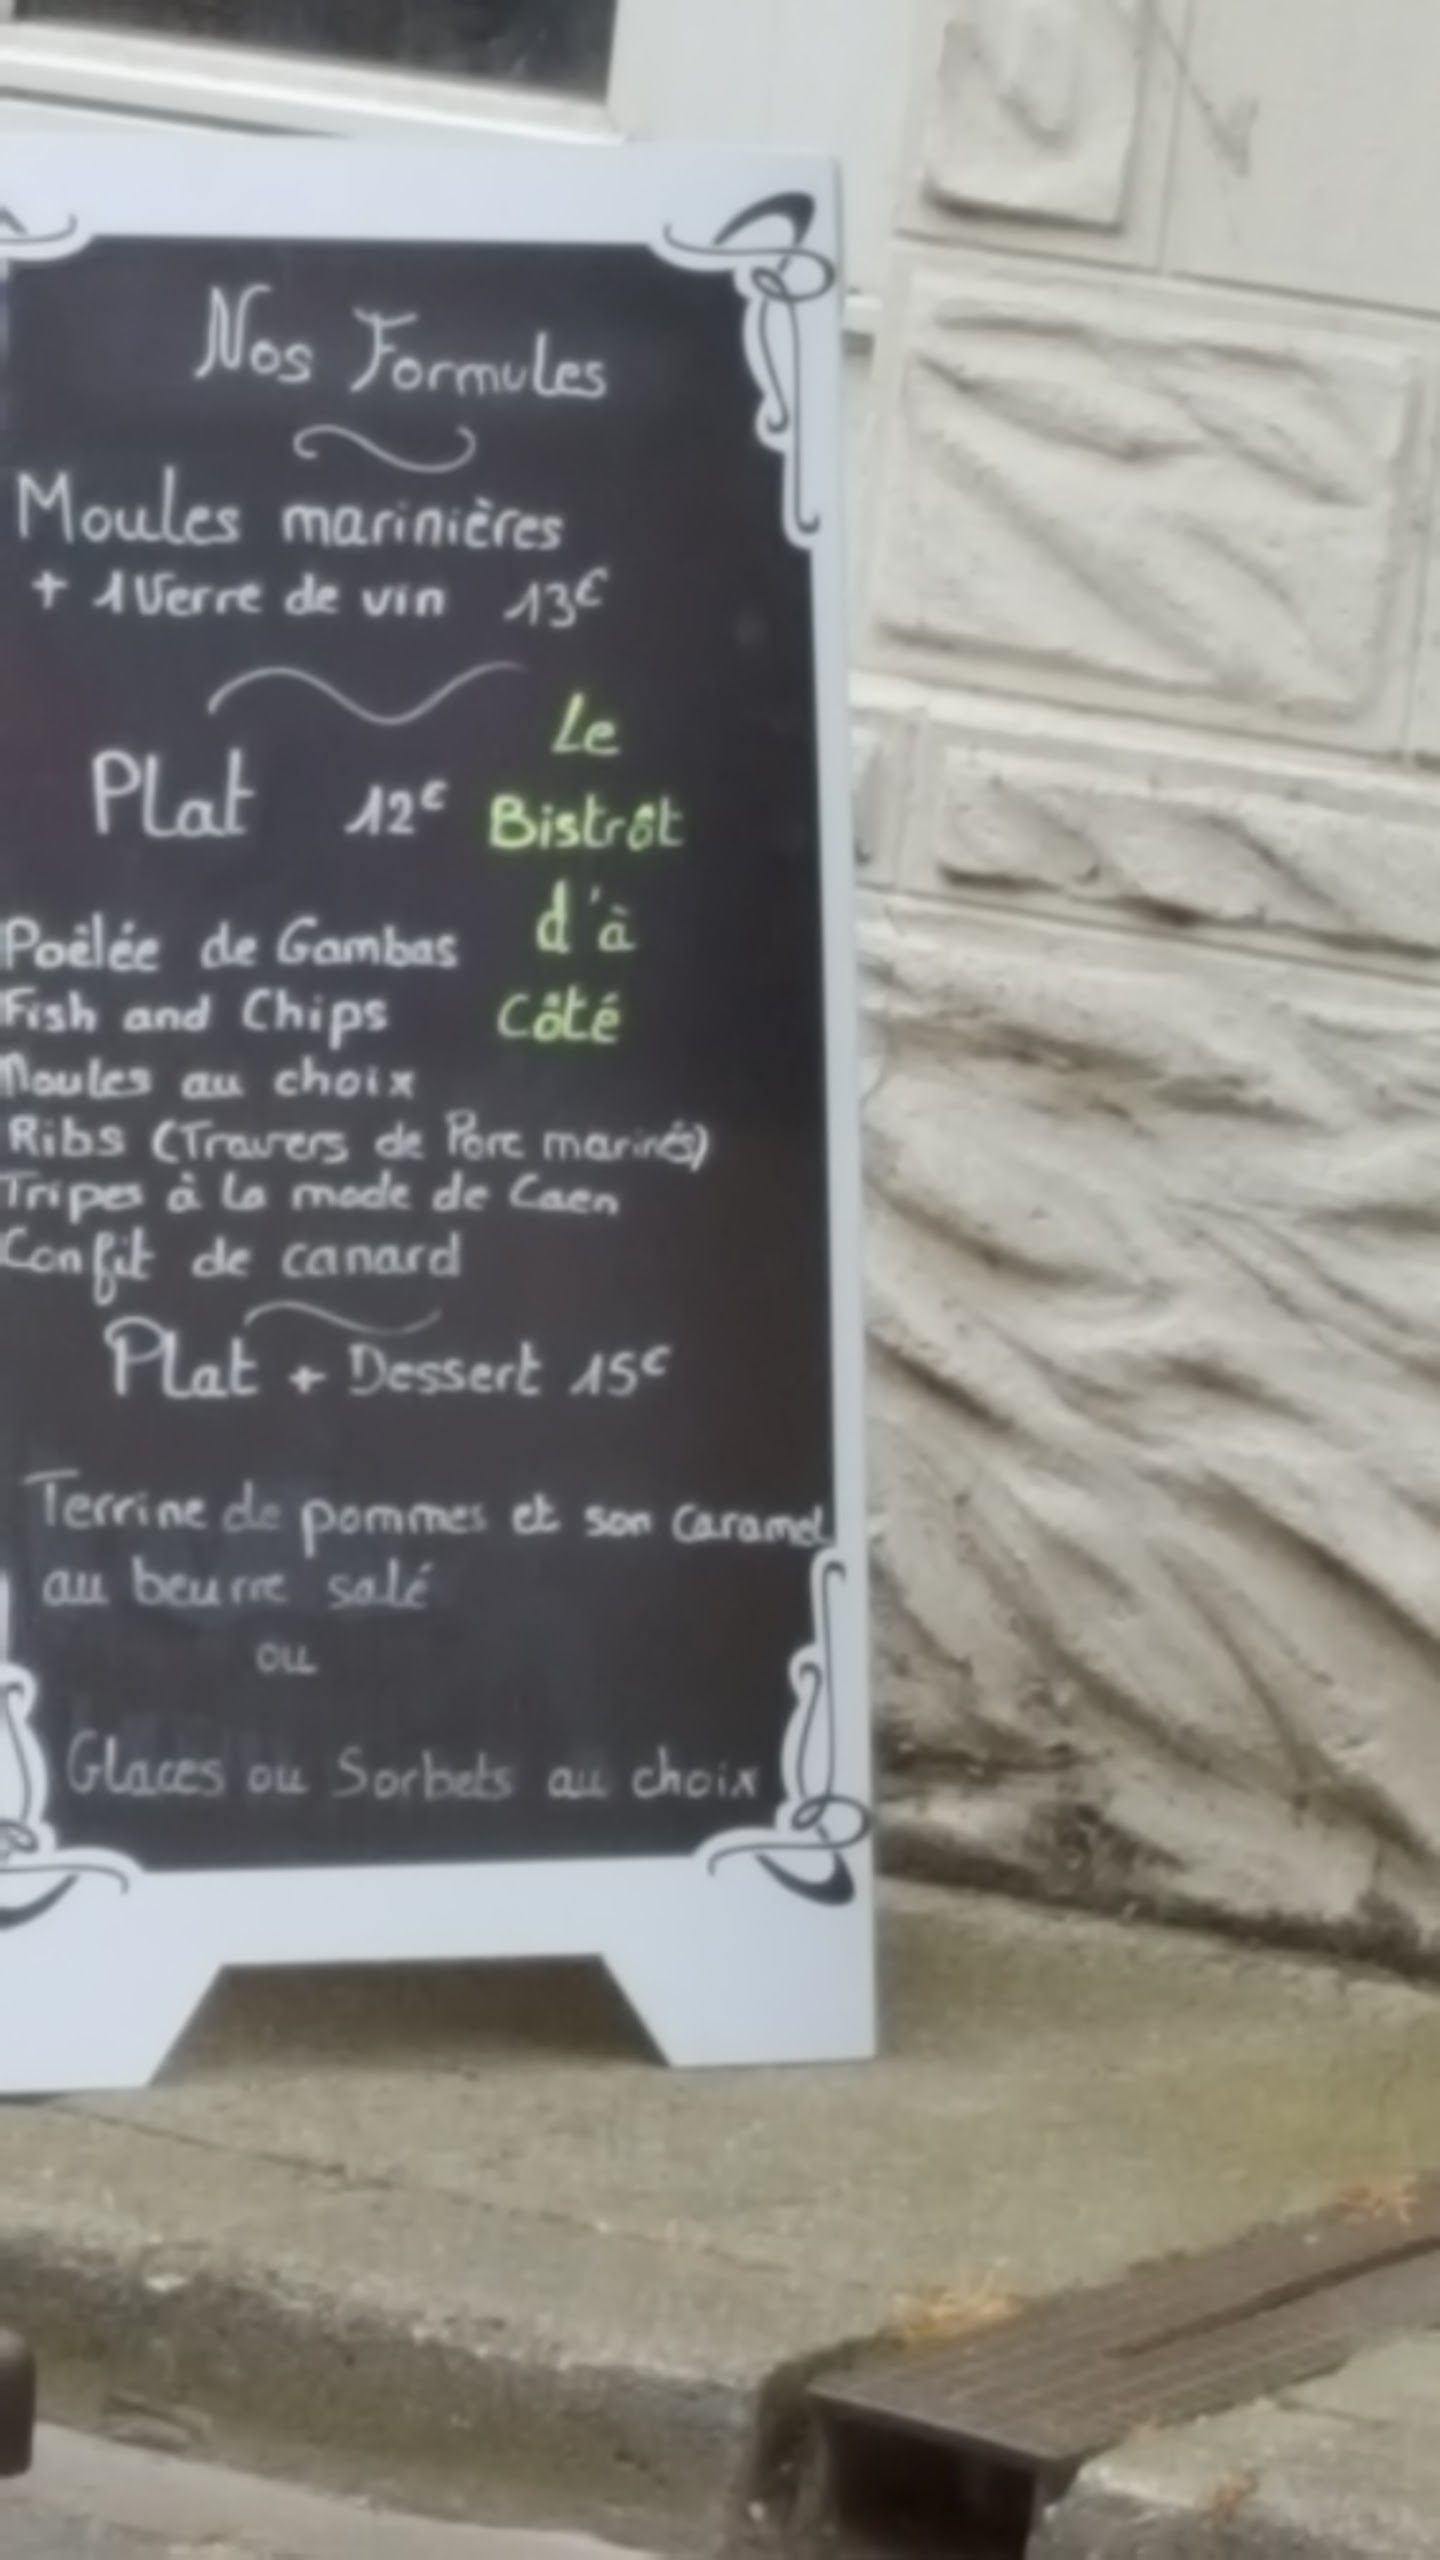 Nos Formules
Moules marinières
+ 1 Verre de vin 13€
Plat 12€
Le
Bistrôt
d'à
Côté
Poêlée de Gambas
Fish and Chips
Moules au choix
Ribs (Travers de Porc marinés)
Tripes à la mode de Caen
Confit de canard
Plat + Dessert 15€
Terrine de pommes et son caramel
au beurre salé
ou
Glaces ou Sorbets au choix